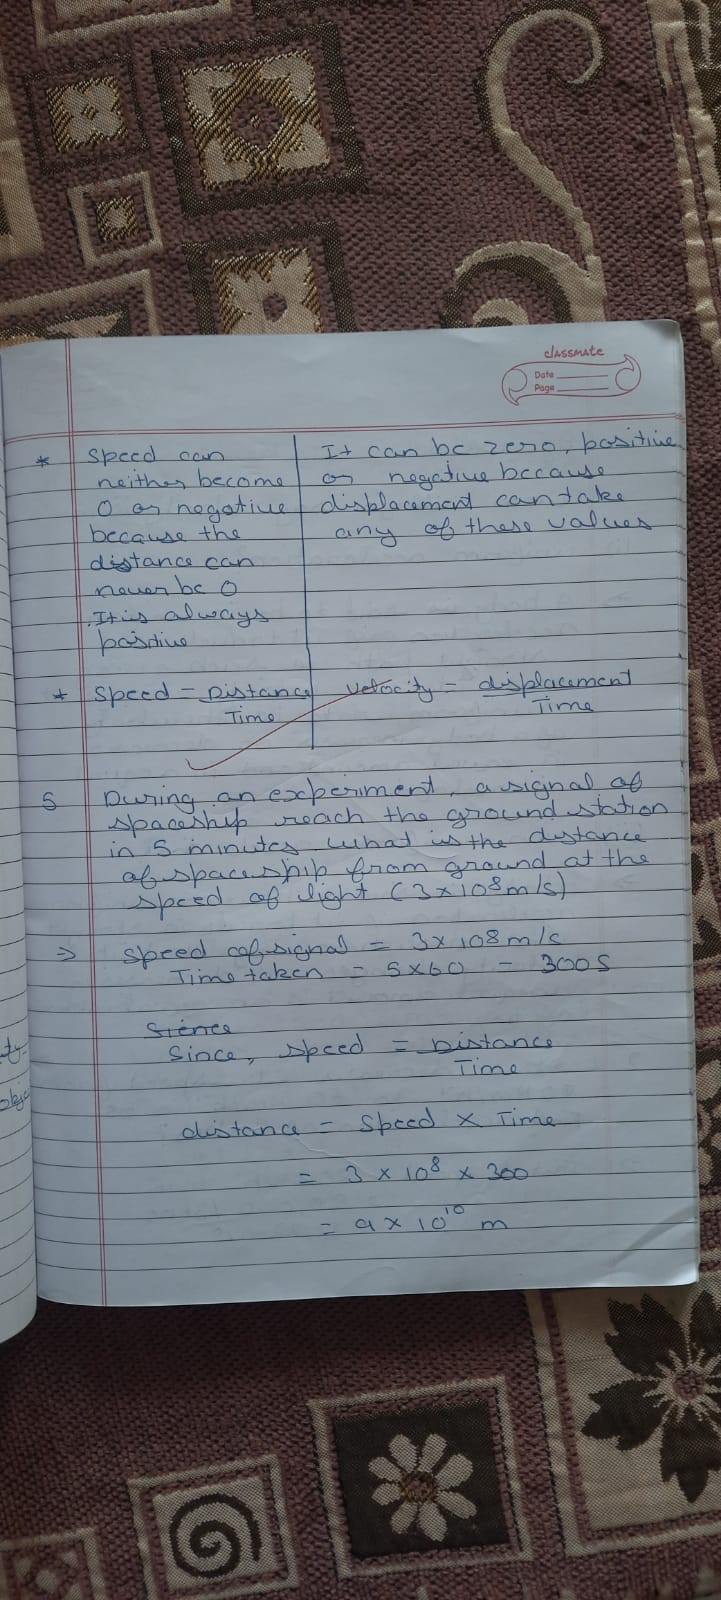 classmate
Date
Page
* Speed can
neither become
0 or negative
because the
distance can
never be 0
.It is always
positive
It can be zero, positive
or negative because
displacement can take
any of these values
* Speed = Distance
Time
Velocity = displacement
Time
5 During an experiment, a signal of
spaceship reach the ground station
in 5 minutes what is the distance
of spaceship from ground at the
speed of light (3x108m/s)
⇒ Speed of signal = 3x108m/s
Time taken = 5x60 = 300s
Since, speed = Distance
Time
distance = Speed x Time
= 3 x 10⁸ x 300
= 9 x 10¹⁰ m
ty-
obje